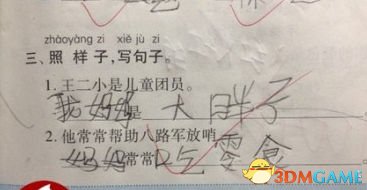 zhàoyàng zi xiě jù zi
三、照 样 子，写句子。
1. 王二小是儿童团员。
我妈妈是 大胖子
2. 他常常帮助八路军放哨
妈妈常常吃零食
3DMGAME